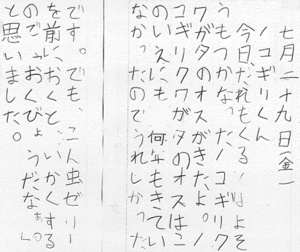 七月二十九日(金)
ノコギリくん
今日だれもくるとはよそ
うもつかなかったノコギリク
ワガタのオスがきたよ。ノ
コギリクワガタのオスはこ
のいえにも何年もきてい
なかったのでうれしかった
です。でも、こん虫ゼリー
を前におくと、いかくする
ので、おくびょうだなぁ。
と思いました。